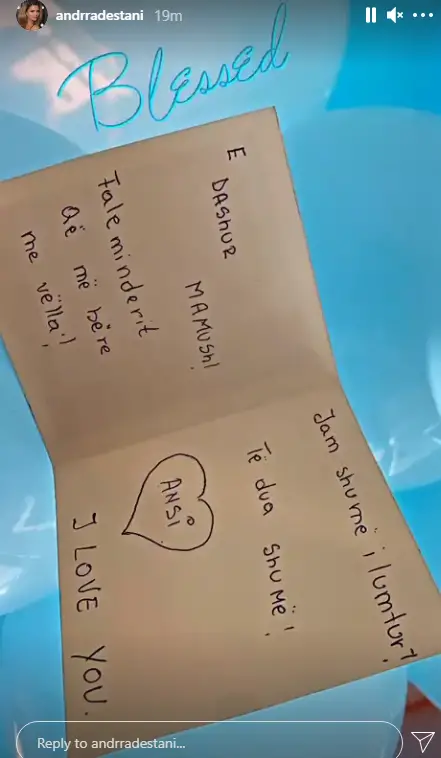 andrradestani 19m
Blessed
E DASHUR
MAMUSH!
Faleminderit
që më bëre
me vëlla!
Jam shumë i lumtur!
Të dua shumë!
ANSI
I LOVE YOU.
Reply to andrradestani...